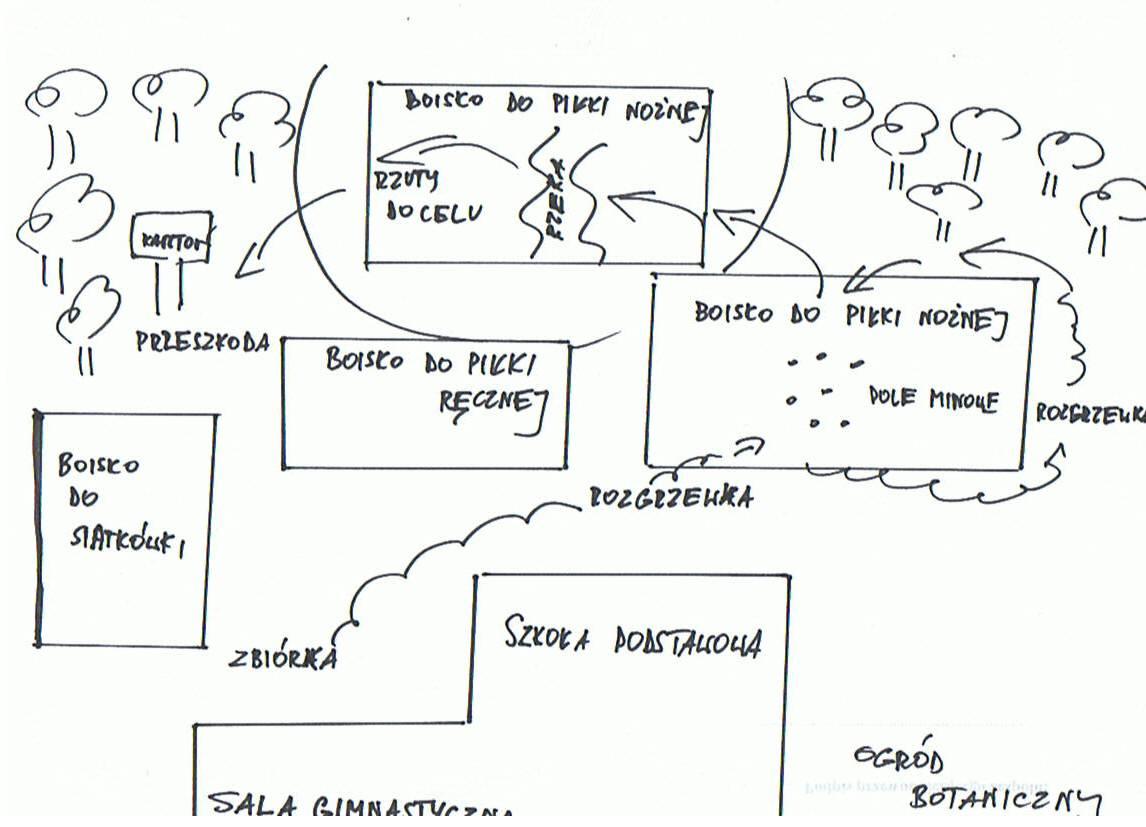 BOISKO DO PIŁKI NOŻNEJ
RZUTY
DO CELU
RZEKA
KANTOR
PRZESZKODA
BOISKO DO PIŁKI
RĘCZNEJ
BOISKO DO PIŁKI NOŻNEJ
POLE MINOWE
ROZGRZEWKA
BOISKO
DO
SIATKÓWKI
ROZGRZEWKA
ZBIÓRKA
SZKOŁA PODSTAWOWA
OGRÓD
BOTANICZNY
SALA GIMNASTYCZNA